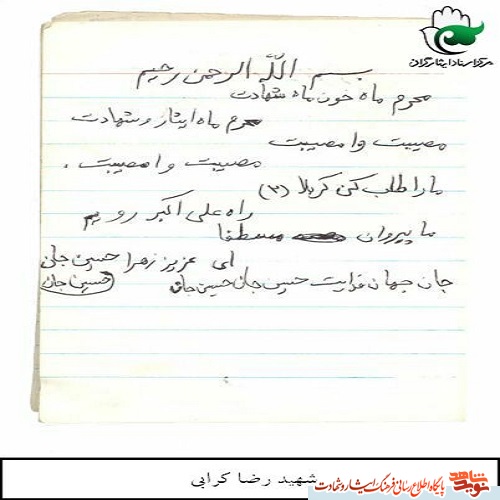 مرکز اسناد ایثارگران
بسم الله الرحمن رحیم
محرم ماه خون ماه شهادت
محرم ماه ایثار و شهادت
مصیبت وا مصیبت
مصیبت وا مصیبت.
ما را طلب کن کربلا (۳)
راه علی اکبر رویم
ما پیروان مسطفا
ای عزیز زهرا حسین جان
جان جهان فدایت حسین جان حسین جان حسین جان
شهید رضا کرابی
نوید شاهد پایگاه اطلاع رسانی فرهنگ ایثار و شهادت